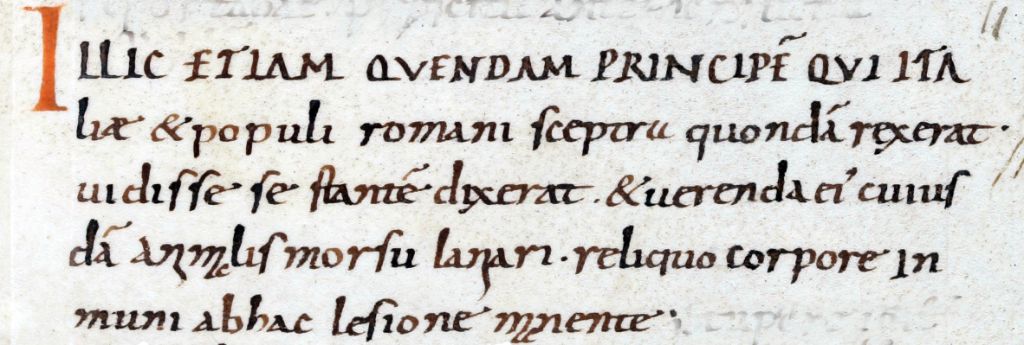 ILLIC ETIAM QVENDAM PRINCIPĒ QVI ITA
liæ & populi romani sceptra quondā rexerat·
uidisse se stantē dixerat. & uerenda ei' cuius
dā animalis morsu laniari. reliquo corpore in
muni ab hac lesione manente·